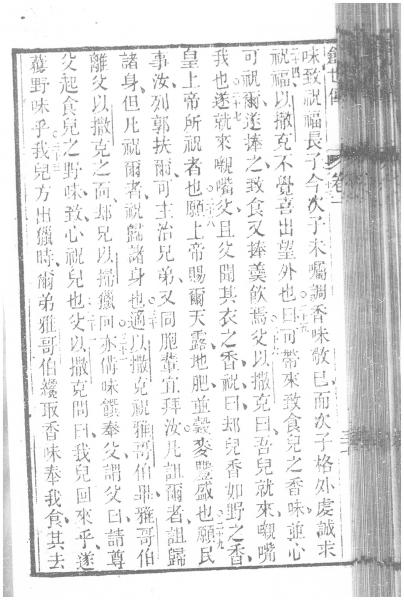 世傳 卷一
味致祝福長子今次子未嚼調香味敬已而次子格外虔誠求
祝福以撒克不覺喜出望外也曰可帶來致食兒之香味並心
可祝爾遂捧之致食又捧羹飲焉父以撒克曰吾兒就來嚫嘴
我也遂就來嚫嘴父且父聞其衣之香祝曰却兒香如野之香
皇上帝所祝者也願上帝賜爾天露地肥並穀麥豐盛也願民
事汝列郭扶爾可主治兄弟又同胞輩宜拜汝凡詛爾者詛歸
諸身但凡祝爾者祝歸諸身也適以撒克祝雅哥伯畢雅哥伯
離父以撒克之面却兄以掃獵回亦備味饌奉父謂父曰請尊
父起食兒之野味致心祝兒也父以撒克問曰我兒回來乎遂
獲野味乎我兒方出獵時爾弟雅哥伯纔取香味奉我食其去